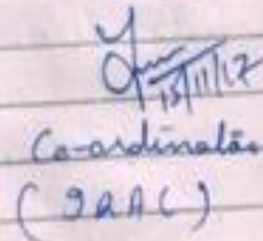 15/11/17
Co-ordinator
(IQAC)